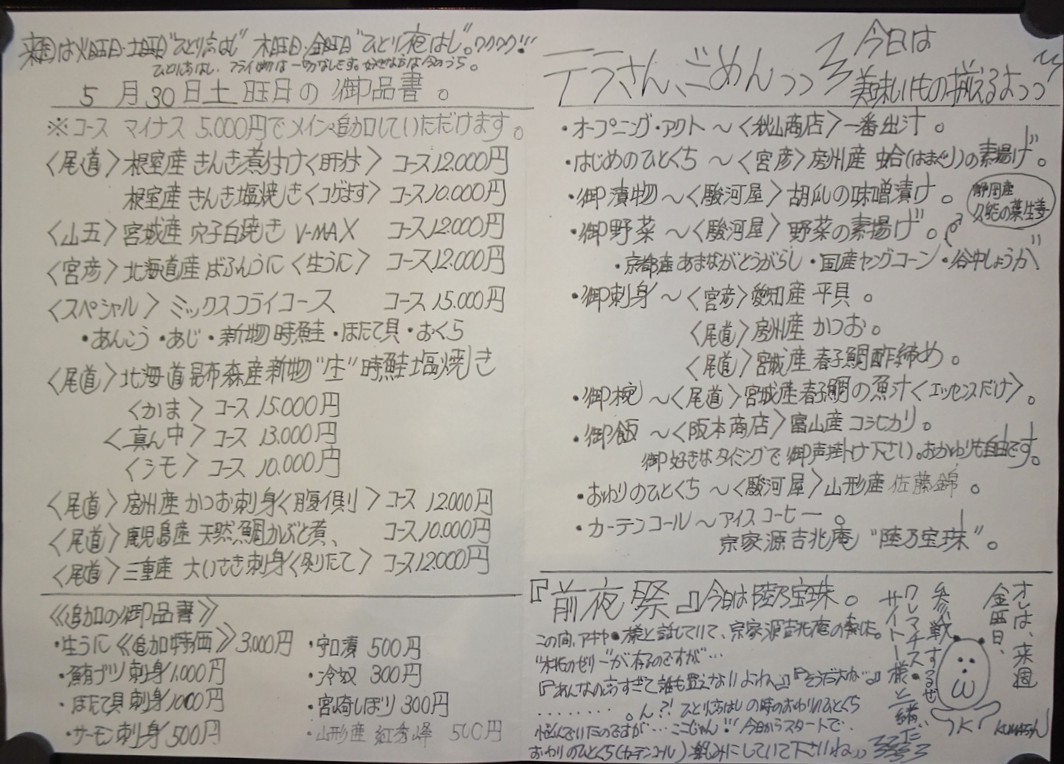 来週は火曜日・土曜日"ひとりあはし"木曜日・金曜日"ひとり夜はし"。ワクワク!!!
5月30日土曜日の御品書。
※コース マイナス5,000円でメイン追加していただけます。
〈尾道〉根室産 きんき煮付け〈肝付〉 コース12,000円
根室産 きんき塩焼き〈コゲます〉 コース10,000円
〈山五〉宮城産 穴子白焼き V-MAX コース12,000円
〈宮彦〉北海道産 ばふんうに〈生うに〉 コース12,000円
〈スペシャル〉ミックスフライコース コース15,000円
・あんこう・あじ・新物 時鮭・ほたて貝・おくら
〈尾道〉北海道昆布森産新物"生"時鮭塩焼き
〈かま〉コース15,000円
〈真ん中〉コース13,000円
〈シモ〉コース10,000円
〈尾道〉房州産 かつお刺身〈腹側〉コース 12,000円
〈尾道〉鹿児島産 天然鯛かぶと煮、 コース10,000円
〈尾道〉三重産 大いさき刺身〈炙りたて〉コース12,000円
《追加の御品書》
・生うに《追加特価》3,000円
・鮪ブツ刺身1,000円
・ほたて貝刺身1,000円
・サーモン刺身500円
・守口漬 500円
・冷奴 300円
・宮崎しぼり 300円
・山形産 紅秀峰 500円
テラさん、ごめんっっ 今日は
美味いもの揃えるよっっ
・オープニング・アクト〜〈秋山商店〉一番出汁。
・はじめのひとくち〜〈宮彦〉房州産 蛤(はまぐり)の素揚げ。
・御漬物〜〈駿河屋〉胡瓜の味噌漬け。
・御野菜〜〈駿河屋〉野菜の素揚げ。
静岡産
久能の葉生姜
・京都産あまながとうがらし・国産ヤングコーン・谷中しょうが
・御刺身〜〈宮彦〉愛知産 平貝。
〈尾道〉房州産 かつお。
〈尾道〉宮城産 春子鯛酢締め。
・御椀〜〈尾道〉宮城産春子鯛の魚汁〈エッセンスだけ〉。
・御飯〜〈阪本商店〉富山産コシヒカリ。
御好きなタイミングで御声掛け下さい。おかわりも自由です。
・おわりのひとくち〜〈駿河屋〉山形産 佐藤錦。
・カーテンコール〜アイスコーヒー。
宗家源吉兆庵 "陸乃宝珠"。
『前夜祭』今日は陸乃宝珠。
この間、アキヤ様と話していて、宗家源吉兆庵の
ゼリー"が有るのですが…
………。ん?!
悩んでいたのですが…ここじゃん!!今日からスタートで…
おわりのひとくち(カーテンコール)楽しみにしていて下さいねっっ
オレは、来週
金曜日、
サイトー様と一緒に
参戦するぜ